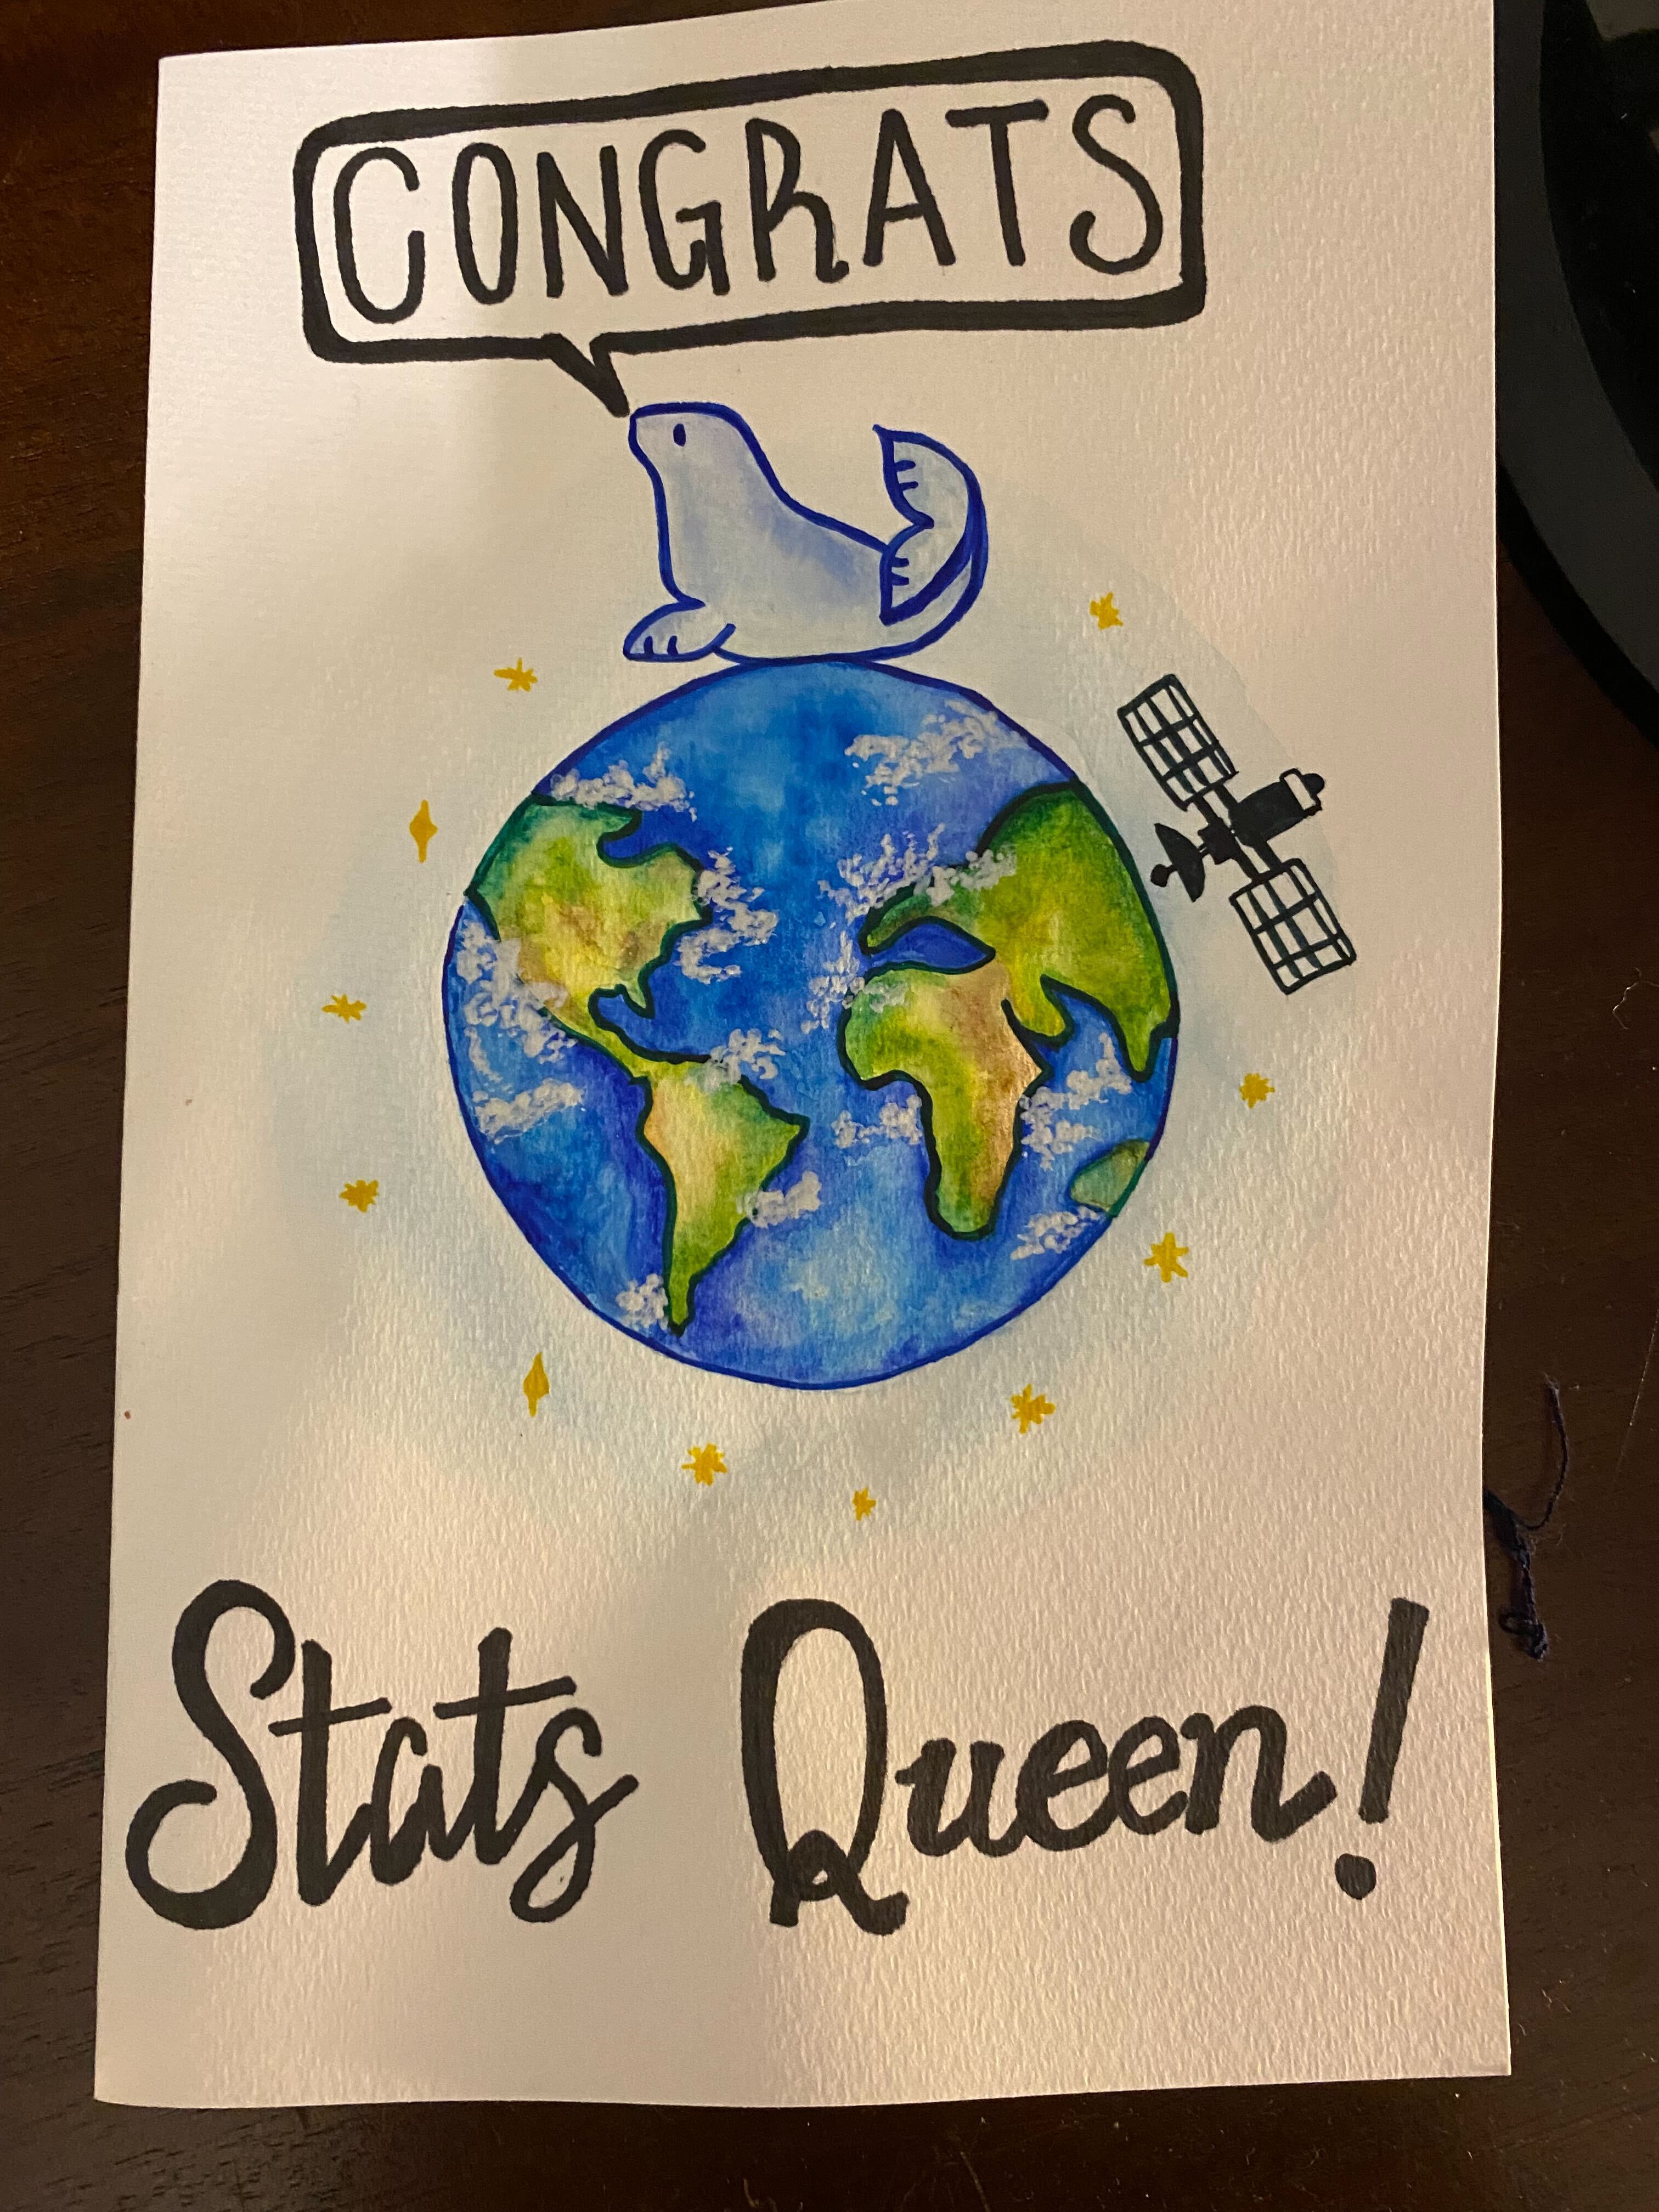 CONGRATS
Stats Queen!